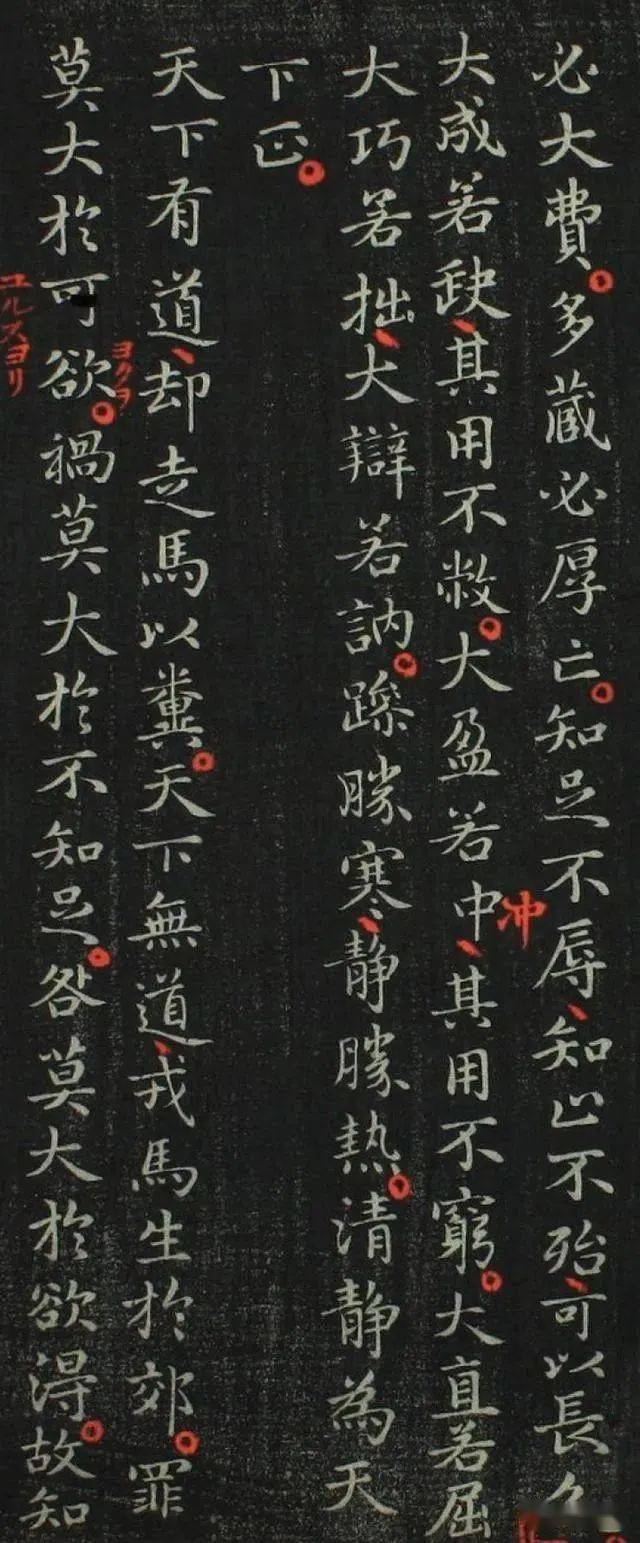 必大費。多藏必厚亡。知足不辱、知止不殆、可以長久
大成若缺、其用不敝。大盈若中、其用不窮。大直若屈
冲
大巧若拙、大辯若訥。躁勝寒、靜勝熱。清靜為天
下正。
天下有道、却走馬以糞。天下無道、戎馬生於郊。罪
莫大於可欲。禍莫大於不知足。咎莫大於欲得。故知
ヨクヲ
ユルスヨリ